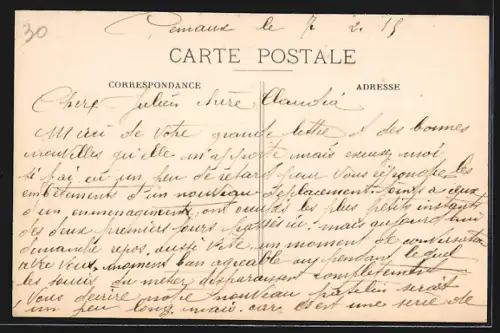 30
le 7 2. 15
CARTE POSTALE
CORRESPONDANCE
ADRESSE
Cher Julien chère Claudia
Merci de votre grande lettre et des bonnes
nouvelles qu'elle m'apporte mais excusez moi
si j'ai eu un peu de retard pour vous répondre les
embêtements d'un nouveau déplacement à ceux
d'un emménagement, ont occupés les plus petits instants
des deux premiers jours passés ici. mais aujourd'hui
dimanche repos, aussi vite un moment de conversation
avec vous, moment bien agréable pendant lequel
les soucis du métier disparaissent complètement
Vous décrire notre nouveau serait
un peu long, mais, car c'est une série de